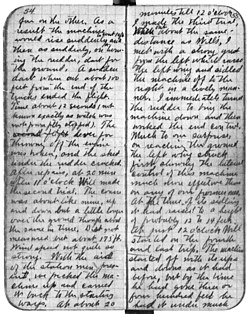 24
gun on the other. As a
result the machine would
rise suddenly to about 10 ft. and
then as suddenly, on turn-
ing the rudder, dart for
the ground. A sudden
dart when out about 100
feet from the end of the
tracks ended the flight.
Time about 12 seconds (not
known exactly as watch was
not promptly stopped). The
lever for
throwing off the engine
was broken, and the skid
under the rudder cracked.
After repairs, at 20 min.
after 11 o'clock Will made
the second trial. The course
was about like mine, up
and down but a little longer
over the ground though about
the same in time. Dist not
measured but about 175 ft.
Wind speed not quite so
strong. With the aid
of the station men pres-
ent, we picked the ma-
chine up and carried
it back to the starting
ways. At about 20
minutes till 12 o'clock
I made the third trial.
When out about the same
distance as Will's, I
met with a strong gust
from the left which raised
the left wing and sidled
the machine off to the
right in a lively man-
ner. I immediately turned
the rudder to bring the
machine down and then
worked the end control.
Much to our surprise
on reaching the ground
the left wing struck
first, showing the lateral
control of this machine
much more effective than
on any of our former ones.
At the time of its sidling
it had raised to a height
of probably 12 to 14 feet.
At just 12 o'clock Will
started on the fourth
and last trip. The machine
started off with its ups
and downs as it had
before, but by the time
he had gone three or
four hundred feet he
had it under much